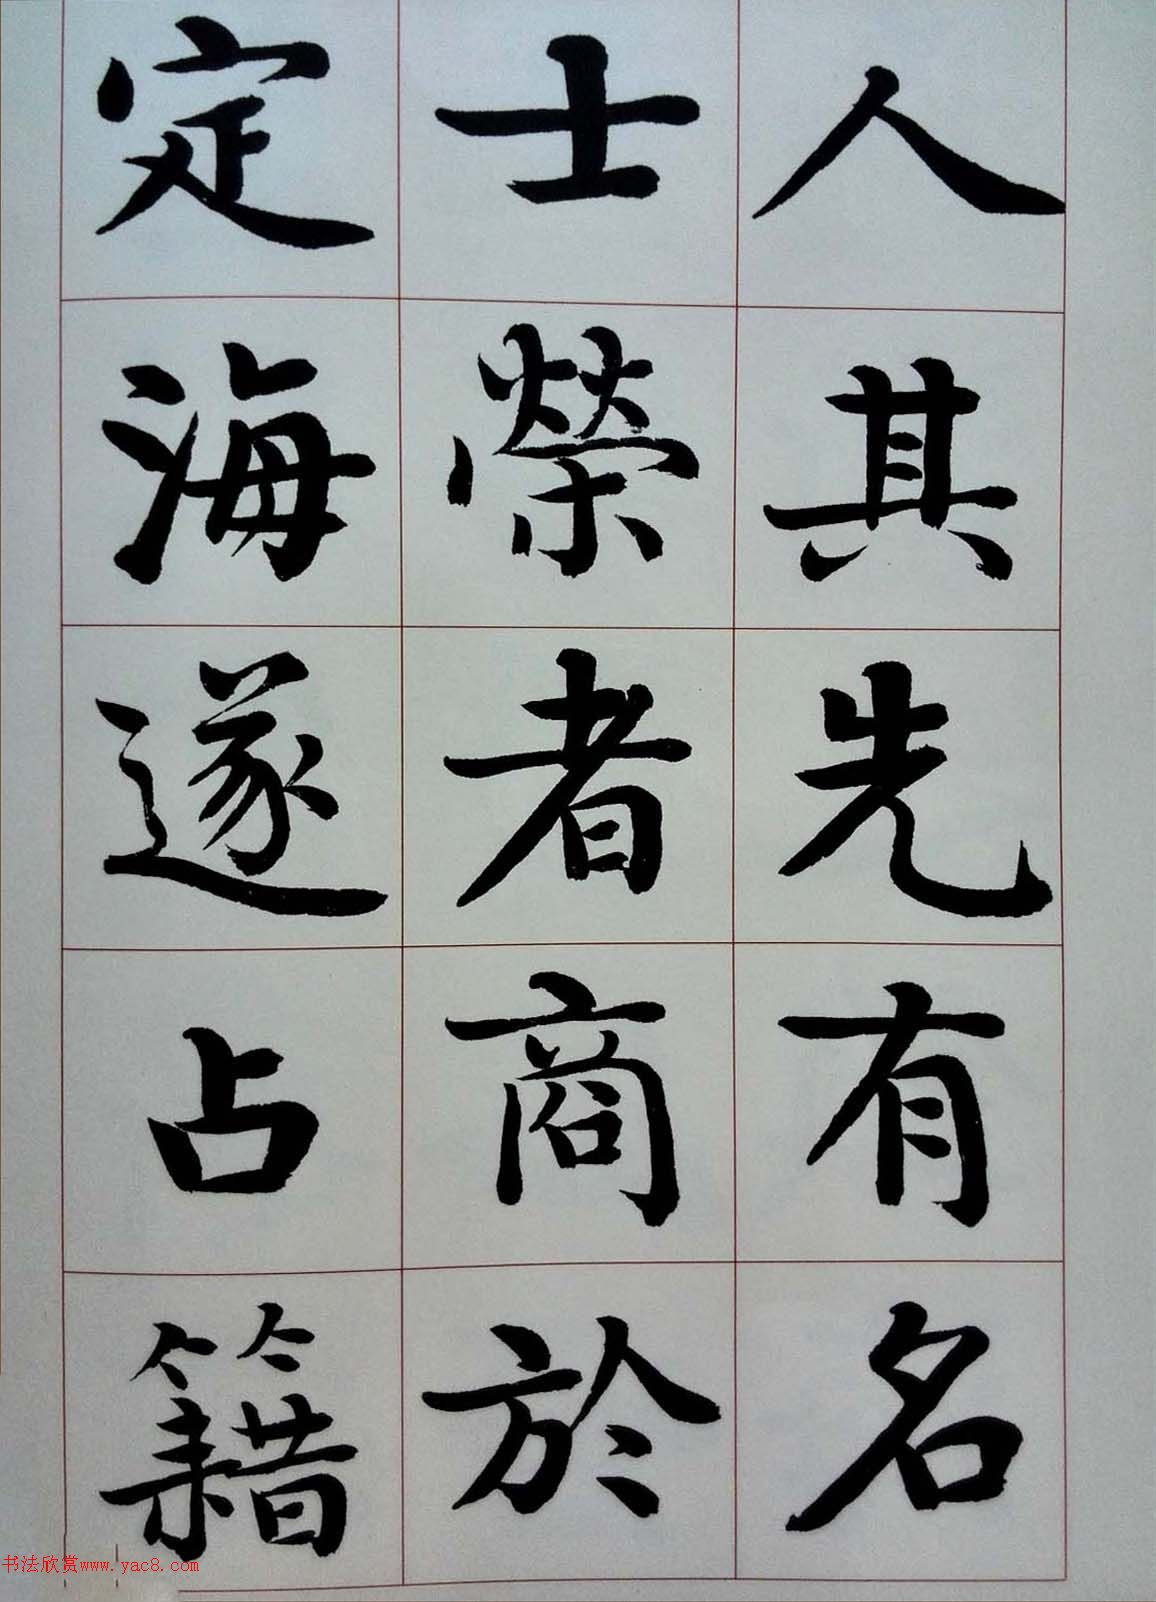 人其先有名
士榮者商於
定海遂占籍
书法欣赏www.yac8.com